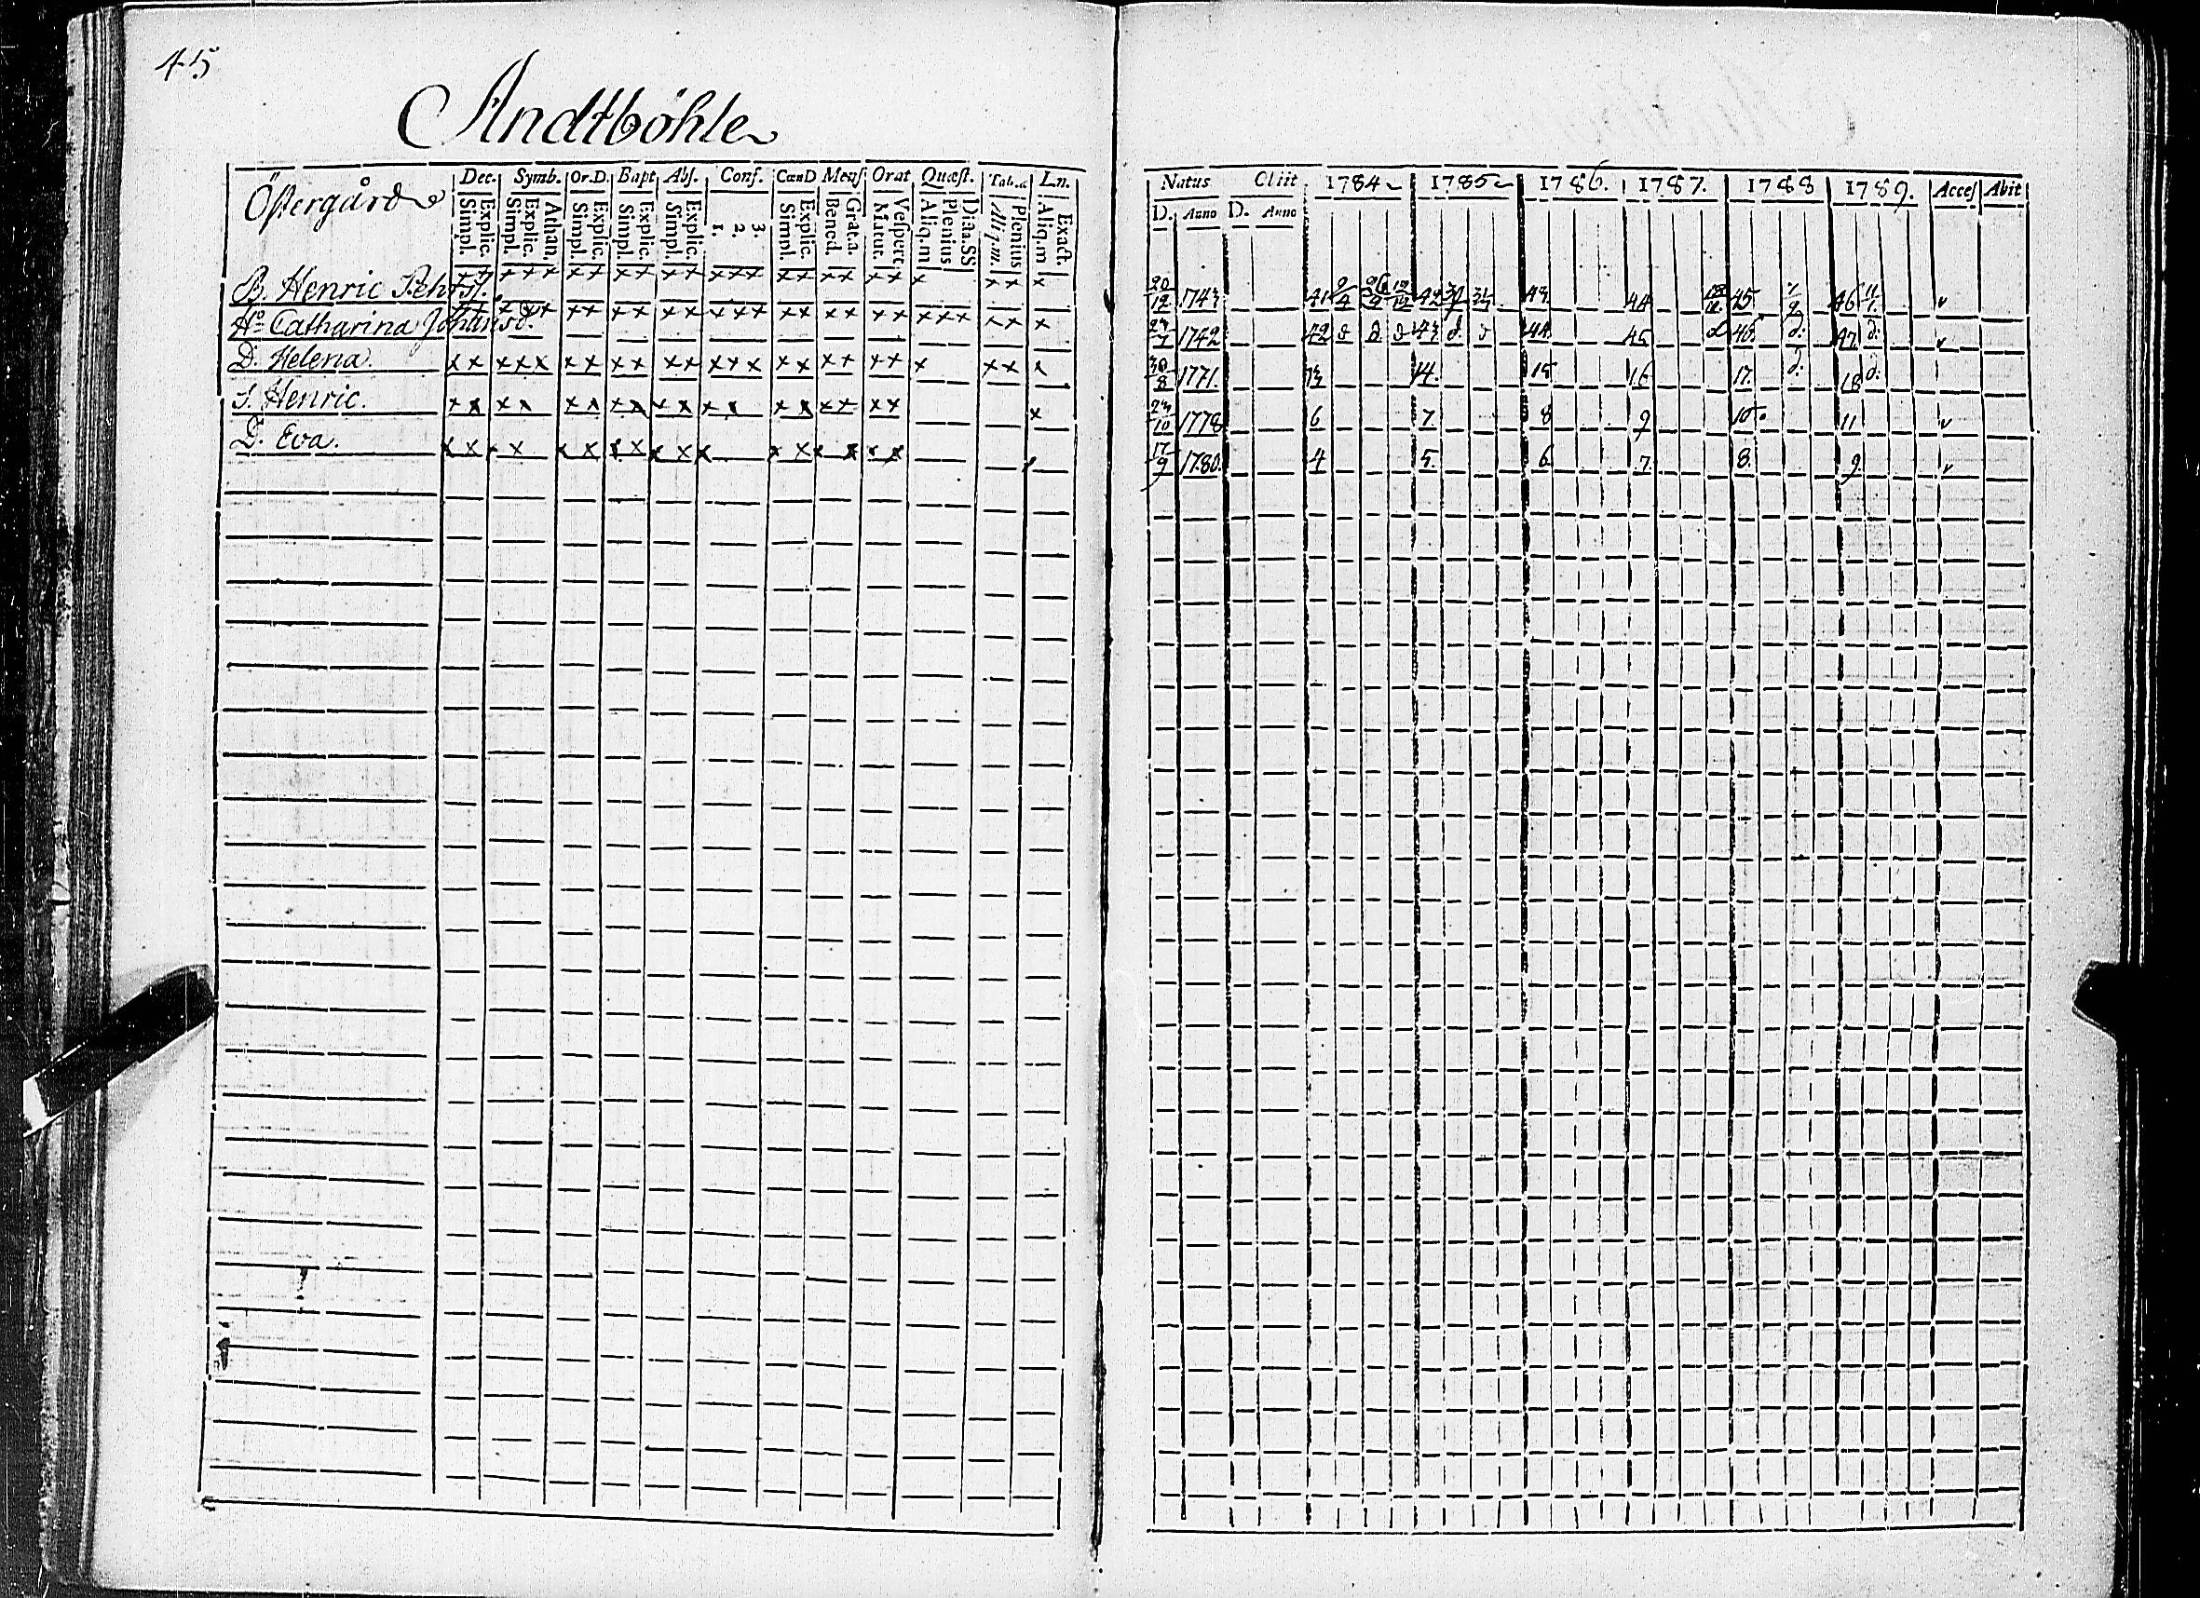 45
Andtböhle
Östergård
Dec. Symb. Or.D. Bapt Abs. Conf. CœnD Mens Orat Quæst. Tab.œ Ln.
Simpl. Explic. Simpl. Explic. Athan. Simpl. Explic. Simpl. Explic. Simpl. Explic. 1. 2. 3. Simpl. Explic. Bened. Grat.a. Matut. Vespert. Aliq.m Plenius D:ta.SS Aliq.m. Plenius Aliq.m Exact
B. Henric Pehrs. x x x x x x x x x x x x x x x x x x x x x x x x
H:o Catharina Johansd. x x x x x x x x x x x x x x x x x x x x x x x x x
D. Helena. x x x x x x x x x x x x x x x x x x x x x x x x
S. Henric. x x x x x x x x x x x x x x x x x x x
D. Eva. x x x x x x x x x x x x x x x x x
Natus Obiit 1784 1785 1786. 1787. 1788 1789. Acces Abit
D. Anno D. Anno
20/12 1743 41 42 43 44 45 46 11/1
1742 42 43 d. 44 45 46 d. 47 d.
30/8 1771. 13 14. 15 16 17. d. 18 d.
1778 6 7. 8 9 10. 11
17/9 1780. 4 5. 6 7. 8. 9